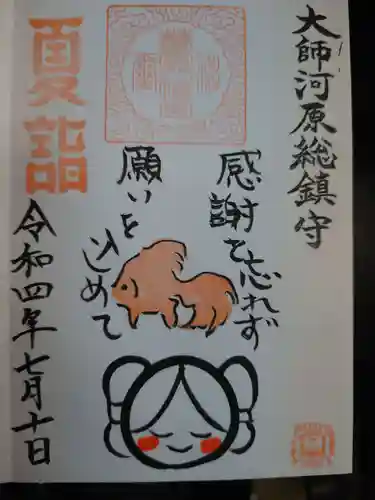 大師河原総鎮守
感謝を忘れず
願いを込めて
夏詣
令和四年七月十日